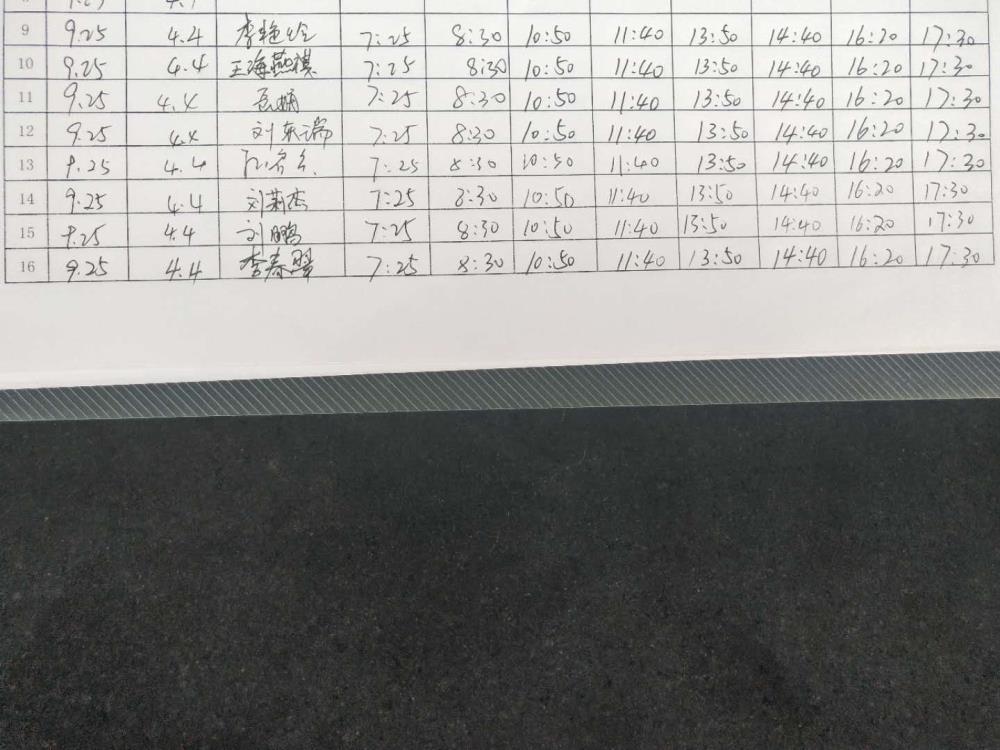 9 9.25 4.4 李艳玲 7:25 8:30 10:50 11:40 13:50 14:40 16:20 17:30
10 9.25 4.4 王海燕 7:25 8:30 10:50 11:40 13:50 14:40 16:20 17:30
11 9.25 4.4 7:25 8:30 10:50 11:40 13:50 14:40 16:20 17:30
12 9.25 4.4 刘东瑞 7:25 8:30 10:50 11:40 13:50 14:40 16:20 17:30
13 9.25 4.4 7:25 8:30 10:50 11:40 13:50 14:40 16:20 17:30
14 9.25 4.4 刘莉杰 7:25 8:30 10:50 11:40 13:50 14:40 16:20 17:30
15 9.25 4.4 刘鹏 7:25 8:30 10:50 11:40 13:50 14:40 16:20 17:30
16 9.25 4.4 李春 7:25 8:30 10:50 11:40 13:50 14:40 16:20 17:30